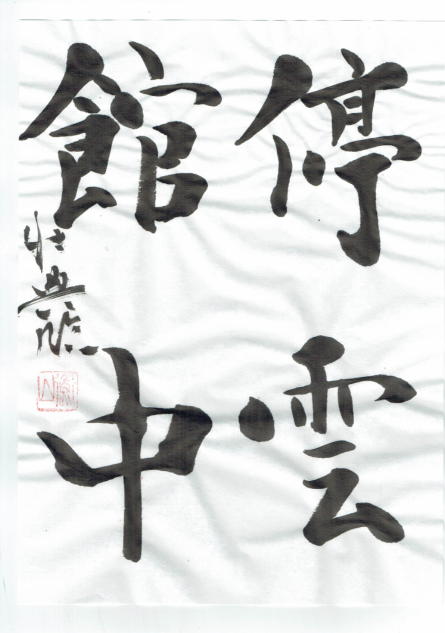 停雲
館中